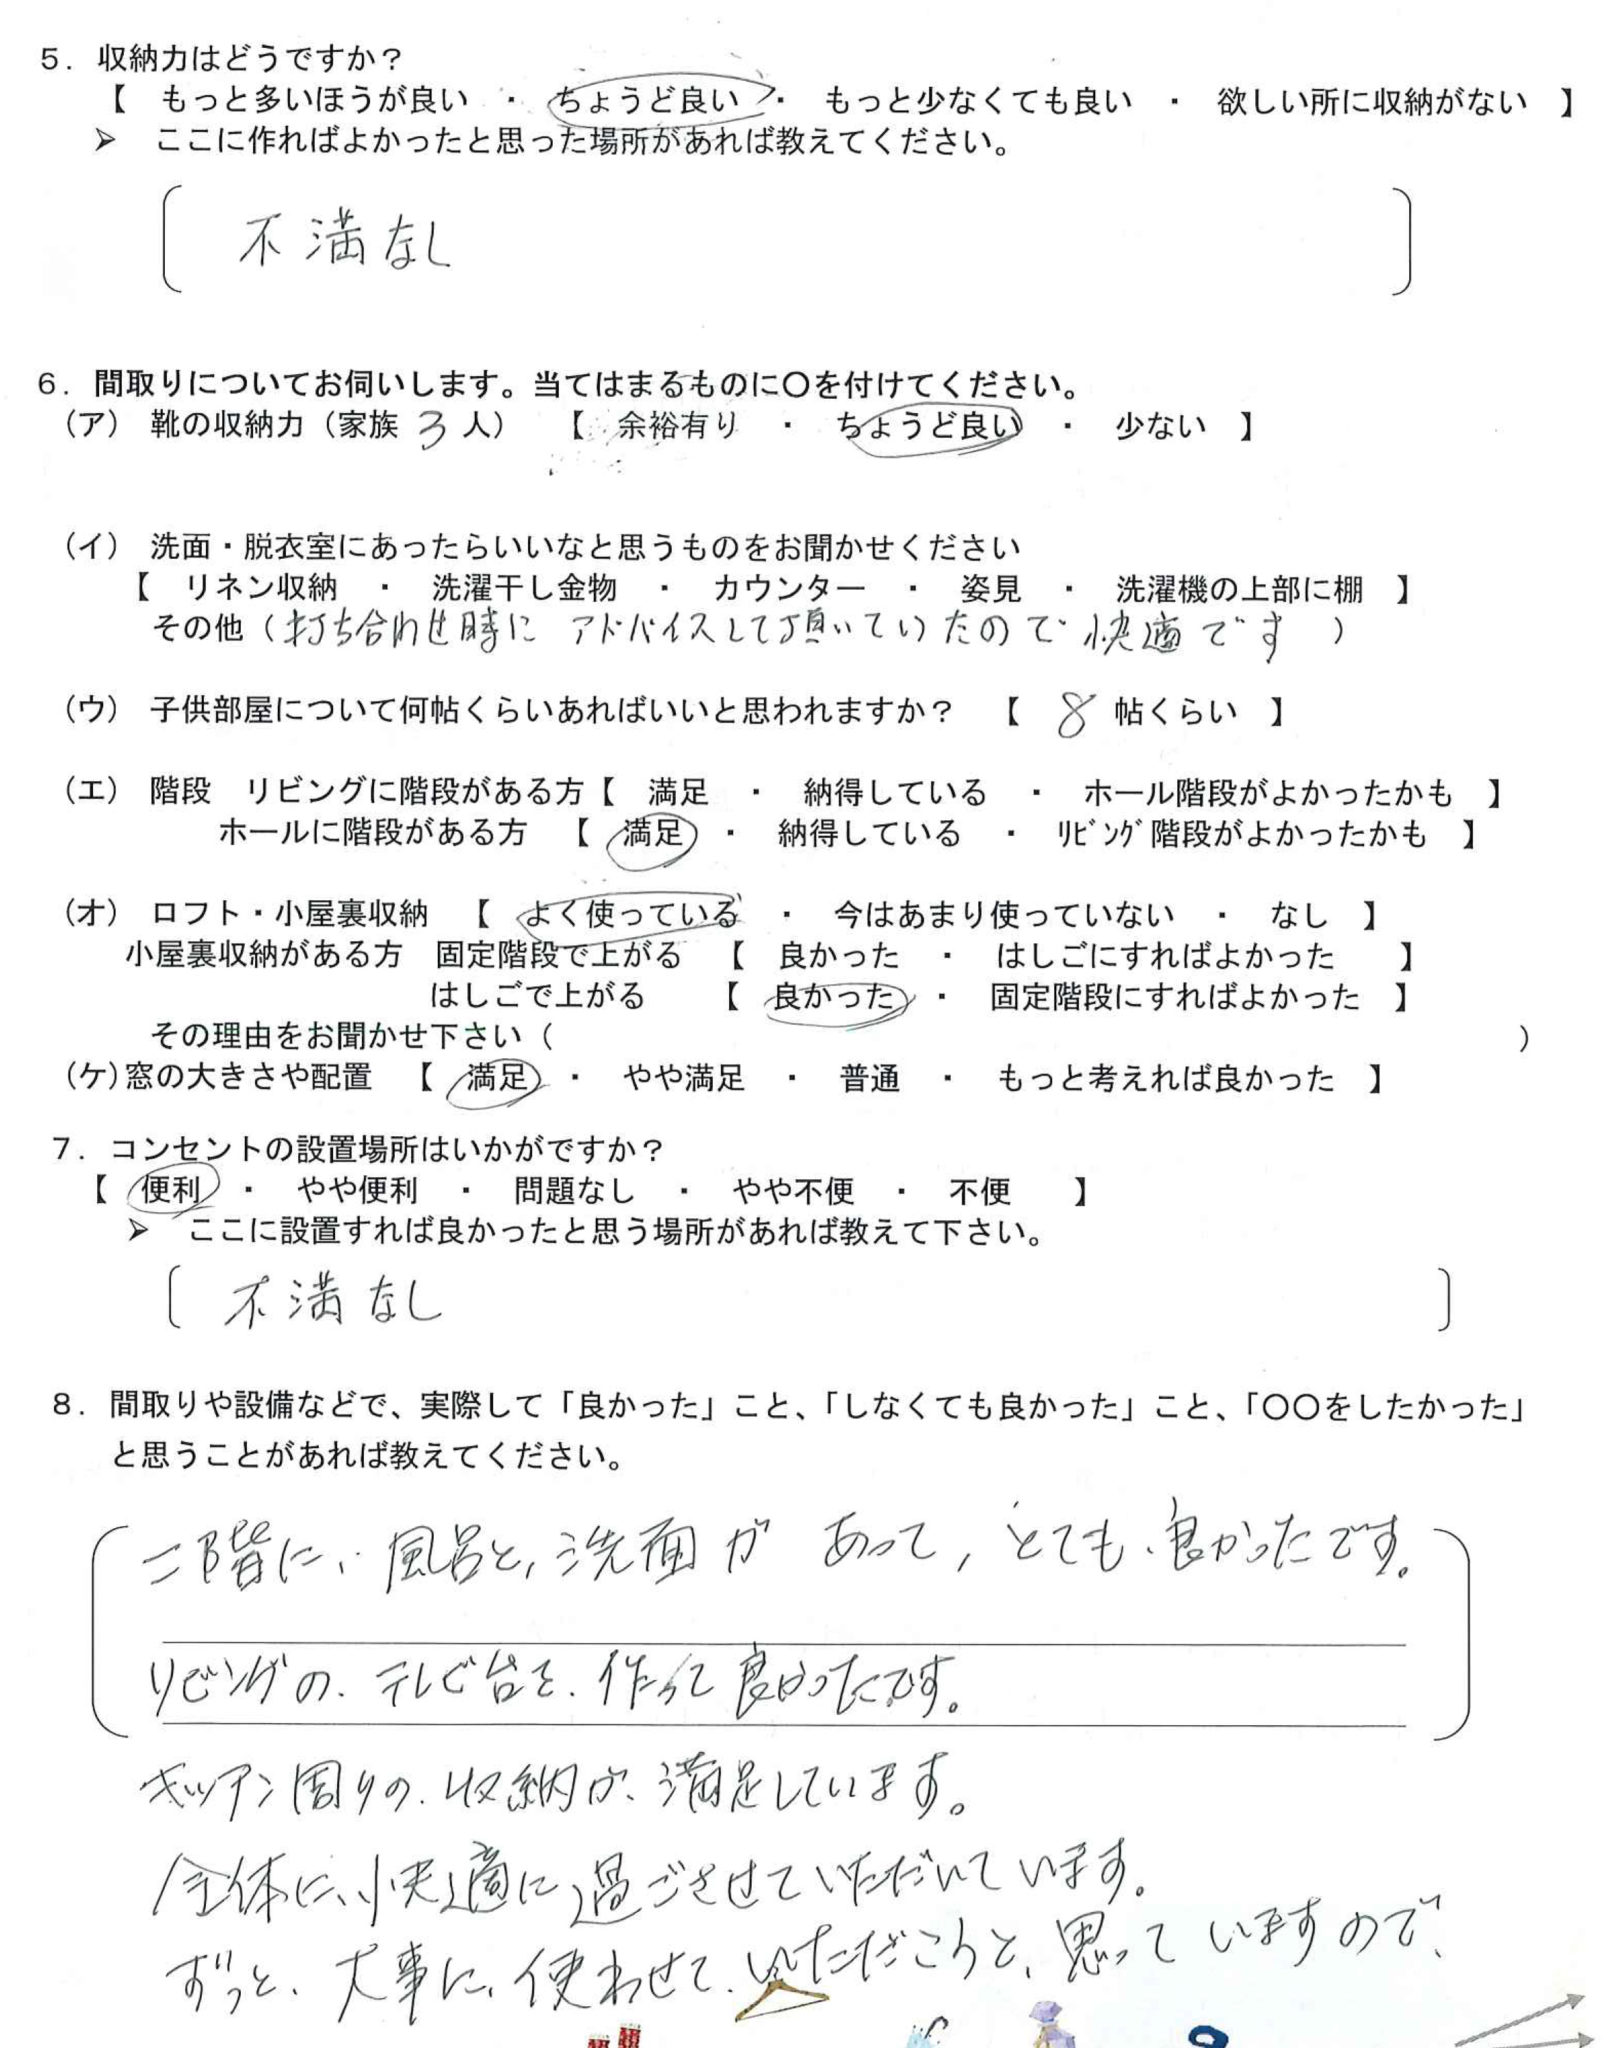 5．収納力はどうですか？
【　もっと多いほうが良い　・　ちょうど良い　・　もっと少なくても良い　・　欲しい所に収納がない　】
➢　ここに作ればよかったと思った場所があれば教えてください。
不満なし
6．間取りについてお伺いします。当てはまるものに〇を付けてください。
（ア）　靴の収納力（家族 3 人）　【　余裕有り　・　ちょうど良い　・　少ない　】
（イ）　洗面・脱衣室にあったらいいなと思うものをお聞かせください
【　リネン収納　・　洗濯干し金物　・　カウンター　・　姿見　・　洗濯機の上部に棚　】
その他（打ち合わせ時に アドバイスして頂いていたので 快適です ）
（ウ）　子供部屋について何帖くらいあればいいと思われますか？　【　8　帖くらい　】
（エ）　階段　リビングに階段がある方【　満足　・　納得している　・　ホール階段がよかったかも　】
ホールに階段がある方　【　満足　・　納得している　・　ﾘﾋﾞﾝｸﾞ階段がよかったかも　】
（オ）　ロフト・小屋裏収納　【　よく使っている　・　今はあまり使っていない　・　なし　】
小屋裏収納がある方　固定階段で上がる　【　良かった　・　はしごにすればよかった　】
はしごで上がる　【　良かった　・　固定階段にすればよかった　】
その理由をお聞かせ下さい（　）
（ケ）窓の大きさや配置　【　満足　・　やや満足　・　普通　・　もっと考えれば良かった　】
7．コンセントの設置場所はいかがですか？
【　便利　・　やや便利　・　問題なし　・　やや不便　・　不便　】
➢　ここに設置すれば良かったと思う場所があれば教えて下さい。
不満なし
8．間取りや設備などで、実際して「良かった」こと、「しなくても良かった」こと、「〇〇をしたかった」
と思うことがあれば教えてください。
二階に、風呂と、洗面が あって、とても、良かったです。
リビングの、テレビ台を、作って良かったです。
キッチン周りの、収納が、満足しています。
全体に、快適に過ごさせていただいています。
ずっと、大事に、使わせて、いただこうと、思っていますので、